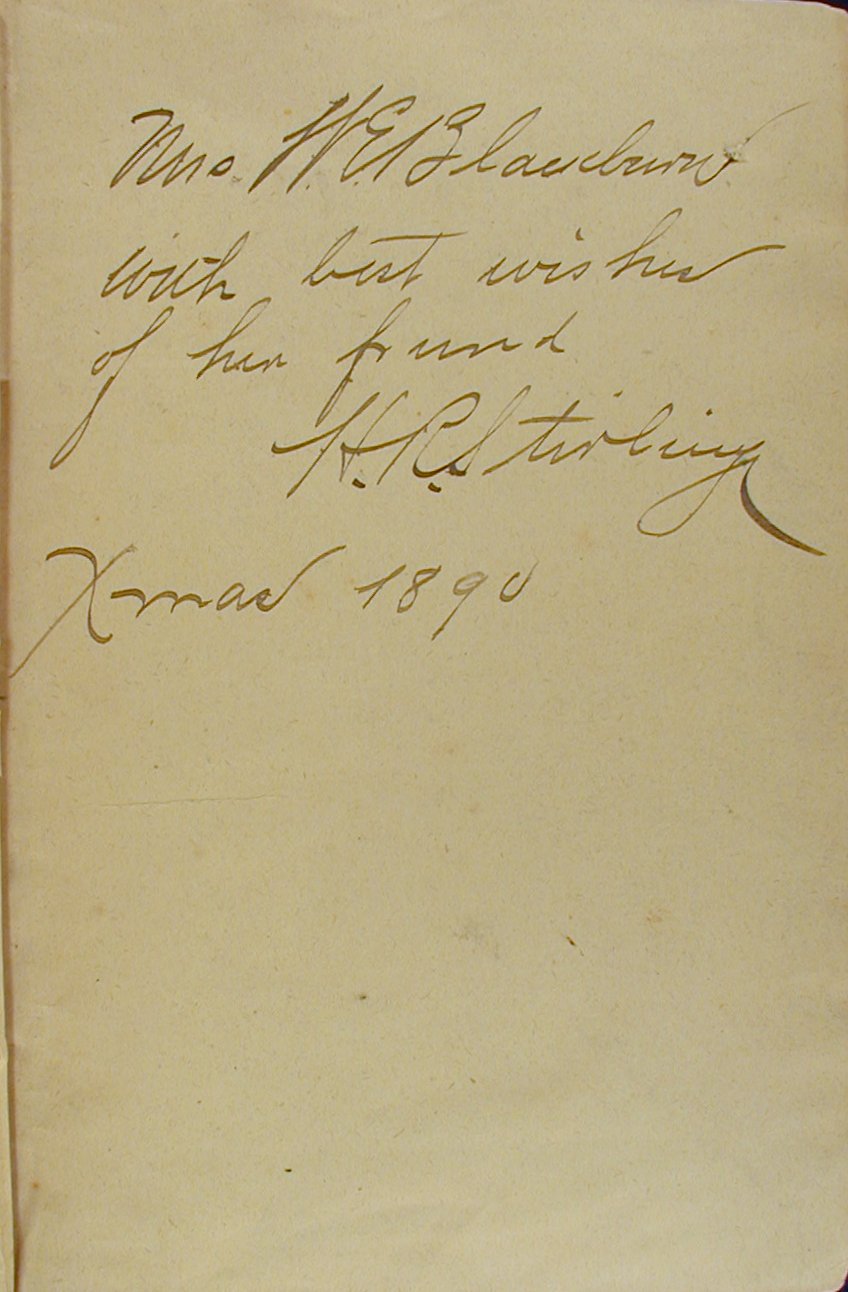 Mrs. W. E. Blackburn
with best wishes
of her friend
H. R. Stirling
Xmas 1890